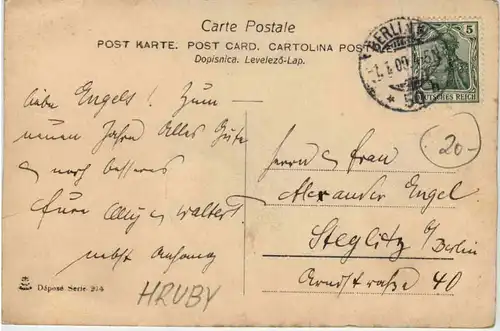 Carte Postale
POST KARTE. POST CARD. CARTOLINA POST
Dopisnica. Levelező-Lap.
BERLIN
50
5
DEUTSCHES REICH
liebe Engels! Zum
neuen Jahre Alles Gute
u noch besseres
Eure Olly u Walter
nebst Anhang
20-
Herrn u Frau
Alexander Engel
Steglitz b/Berlin
Arndtstraße 40
Déposé Serie 294
HRUBY